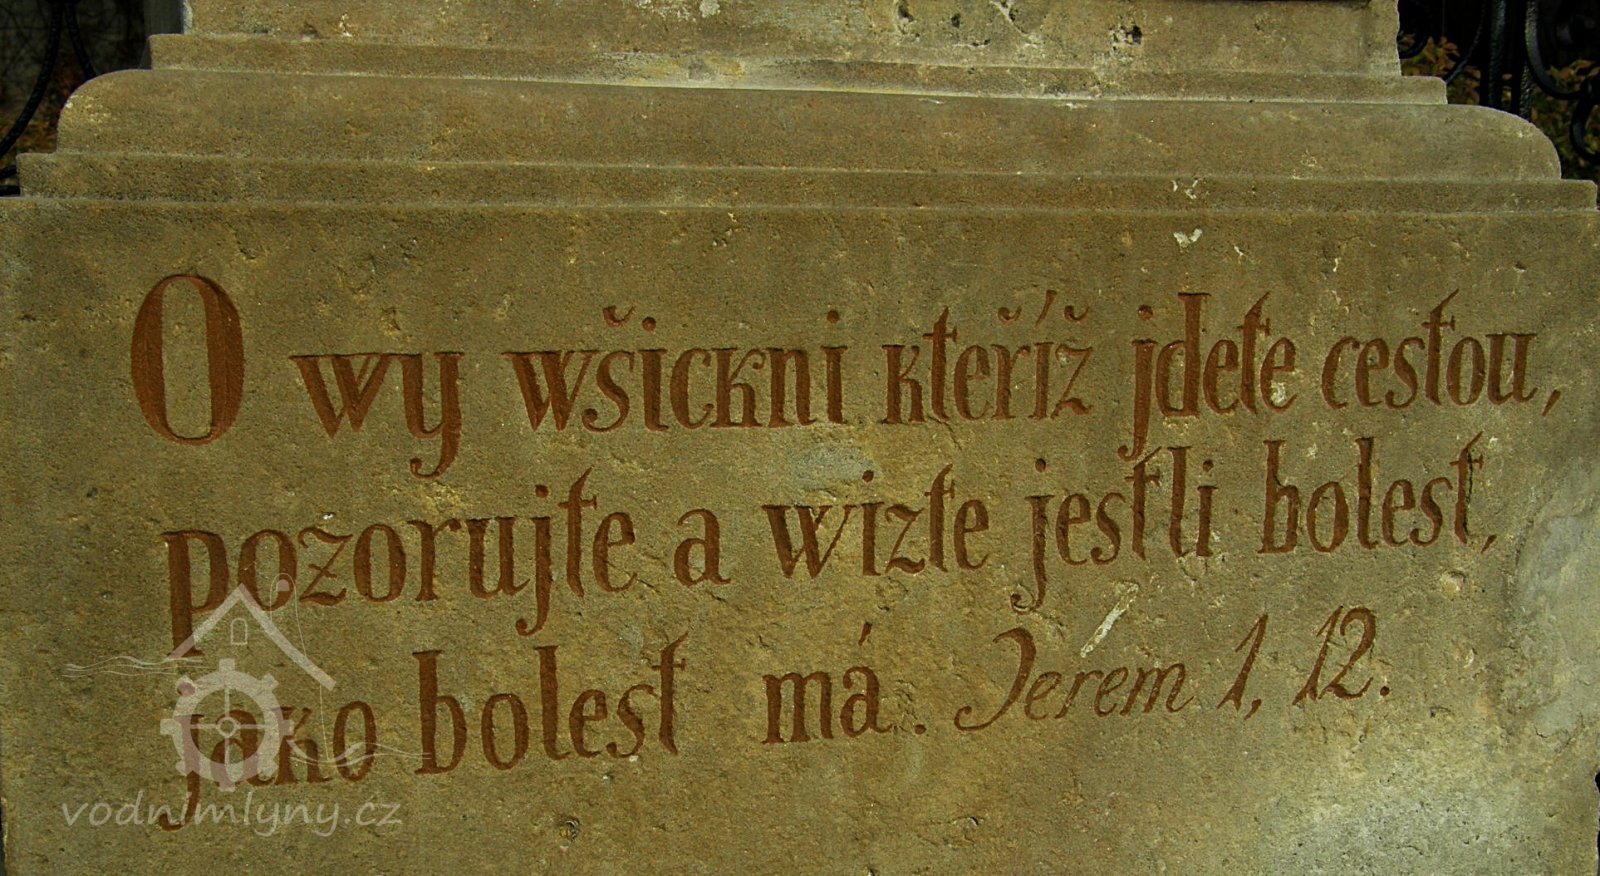 O wy wšickni kteříž jdete cestou,
pozorujte a wizte jestli bolest,
jako bolest má. Jerem 1, 12.
vodnimlyny.cz